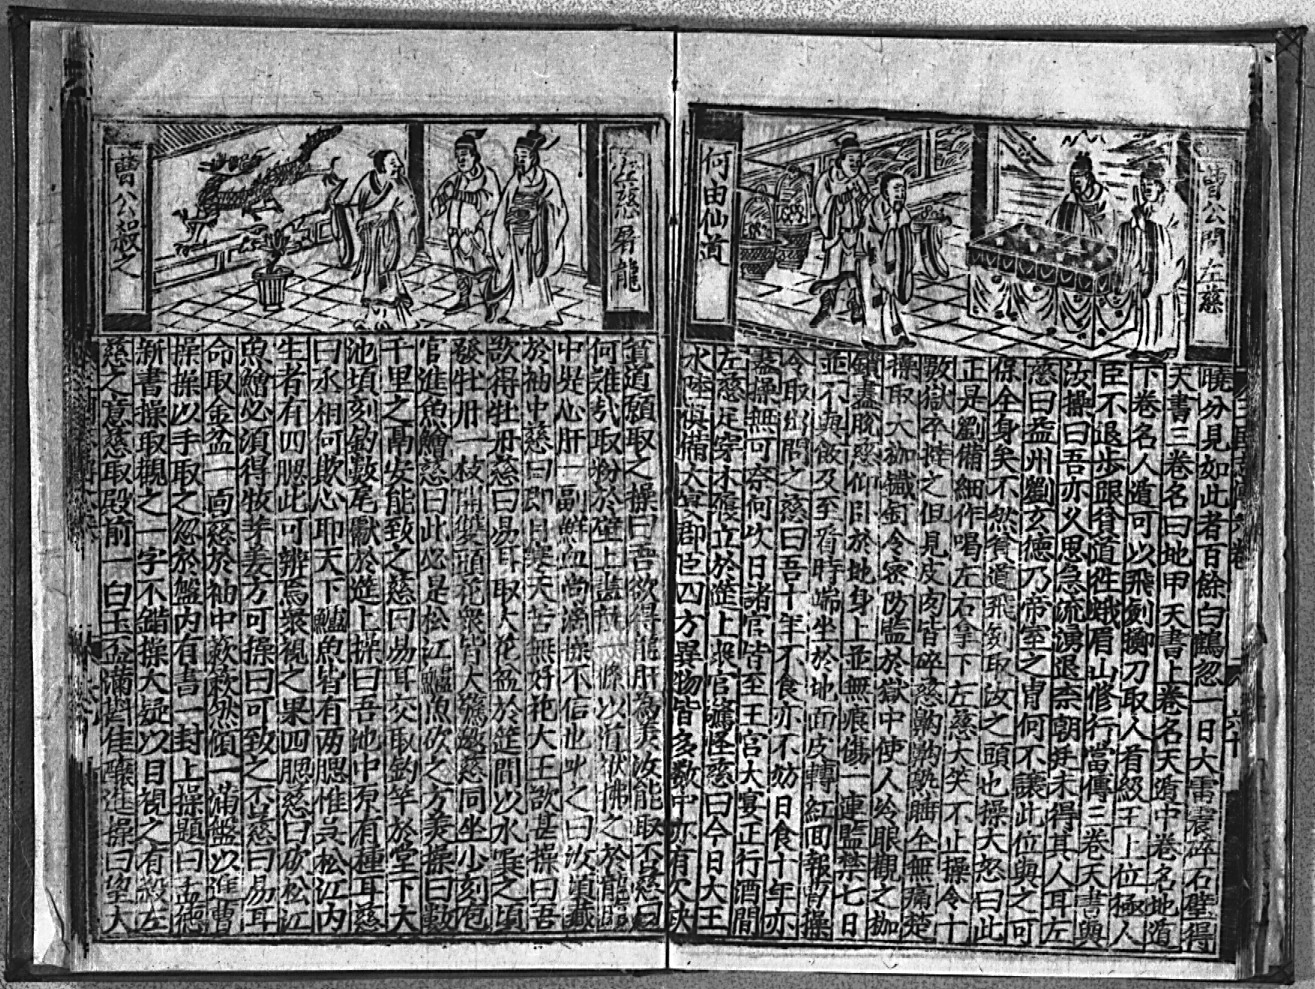 曹公問左慈
何由仙道
曉分見如此者百餘白鶴忽一日大雷震碎石壁得
天書三卷名曰地甲天書上卷名天遁中卷名地遁
下卷名人遁可以飛劍擲刀取人首級王上位極人
臣不退步跟貧道徃峨眉山修行當傳三卷天書與
汝操曰吾亦乂思急流湧退柰朝廷未得其人耳左
慈曰益州劉玄德乃帝室之胄何不讓此位與之可
保全身矣不然貧道飛劍取汝之頭也操大怒曰此
正是劉備細作唱左右拿下左慈大笑不止操令十
數獄卒拷之但見皮肉皆碎慈齁齁熟睡全無痛楚
操取大枷鐵釘令密防監於獄中使人冷眼觀之枷
鎖盡脫慈仰臥於地身上並無痕傷一連監禁七日
並不與飲及至看時端坐於地面皮轉紅回報曹操
令取出問之慈曰吾十年不食亦不妨日食十年亦
盡操無可奈何次日諸官皆至王宮大宴正行酒間
左慈足穿木履立於筵上衆官驚怪慈曰今日大王
水陸俱備大宴群臣四方異物皆多數中亦有欠缺
左慈屠龍
曹公殺之
貧道願取之操曰吾欲得龍肝為羹汝能取否慈曰
何難哉取粉於壁上畫龍一條以道袱拂之於龍腹
中出心肝一副鮮血尚滴操不信叱之曰汝須藏
於袖中慈曰即目寒天苦無好花大王欲甚操曰吾
欲得牡丹慈曰易耳取大花盆於筵間以水噀之頃
發牡丹一枝開雙頭花衆皆大驚邀慈同坐小刻庖
官進魚鱠慈曰此必是松江鱸魚砍之方美操曰數
千里之禹安能致之慈曰易耳交取釣竿於堂下大
池頃刻釣數尾獻於筵上操曰吾池中原有種耳慈
曰水相何欺心耶天下鱸魚皆有两腮惟吳松江內
生者有四腮此可辨焉衆視之果四腮慈曰砍松江
魚鱠必須得牧芽姜方可操曰可致之不慈曰易耳
命取金盆一面慈於袖中簌簌然傾一滿盤以進曹
操操以手取之忽於盤內有書一封上操題曰孟德
新書操取觀之一字不錯操大疑以目視之有殺左
慈之意慈取殿前一白玉盃滿斟佳釀進操曰望大